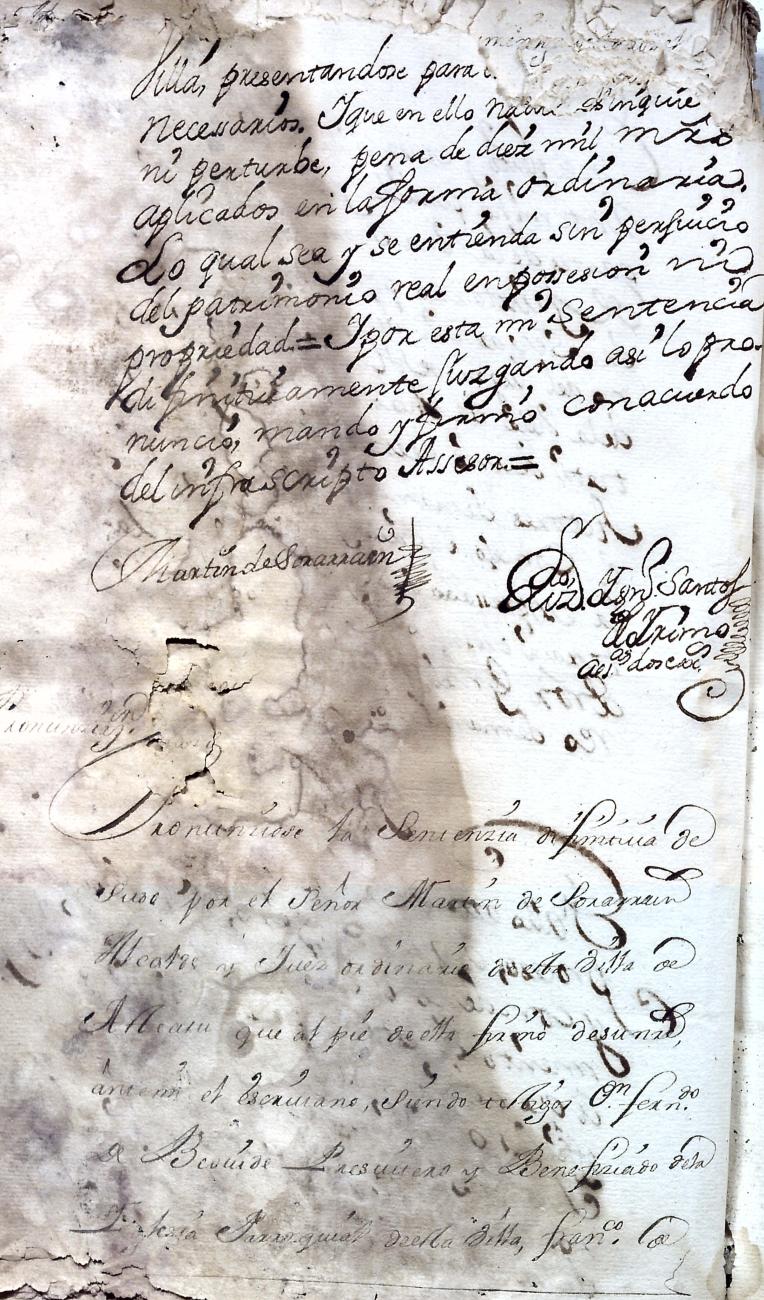 Villa, presentandose para
necessarios. Y que en ello nadie inquie
ni perturbe, pena de diez mil mrs
aplicados en la forma ordinaria.
Lo qual sea y se entienda sin perjuicio
del patrimonio real en possesion ni
propriedad = Y por esta mi Sentencia
difinitivamente Juzgando asi lo pro-
nunció, mando y firmó con acuerdo
del infrascripto Assesor =
Martin de Sorarrain
Santos
Pronunziose la Sentenzia difinitiua de
suso por el Señor Martin de Sorarrain
Alcalde y Juez ordinario de esta Villa de
que al pie de ella firmó de su nre,
antemi el escriuano, siendo testigos Dn. ferndo.
de Presuitero y Benefiziado dela
Iglesia Parroquial de esta Villa, franco. de